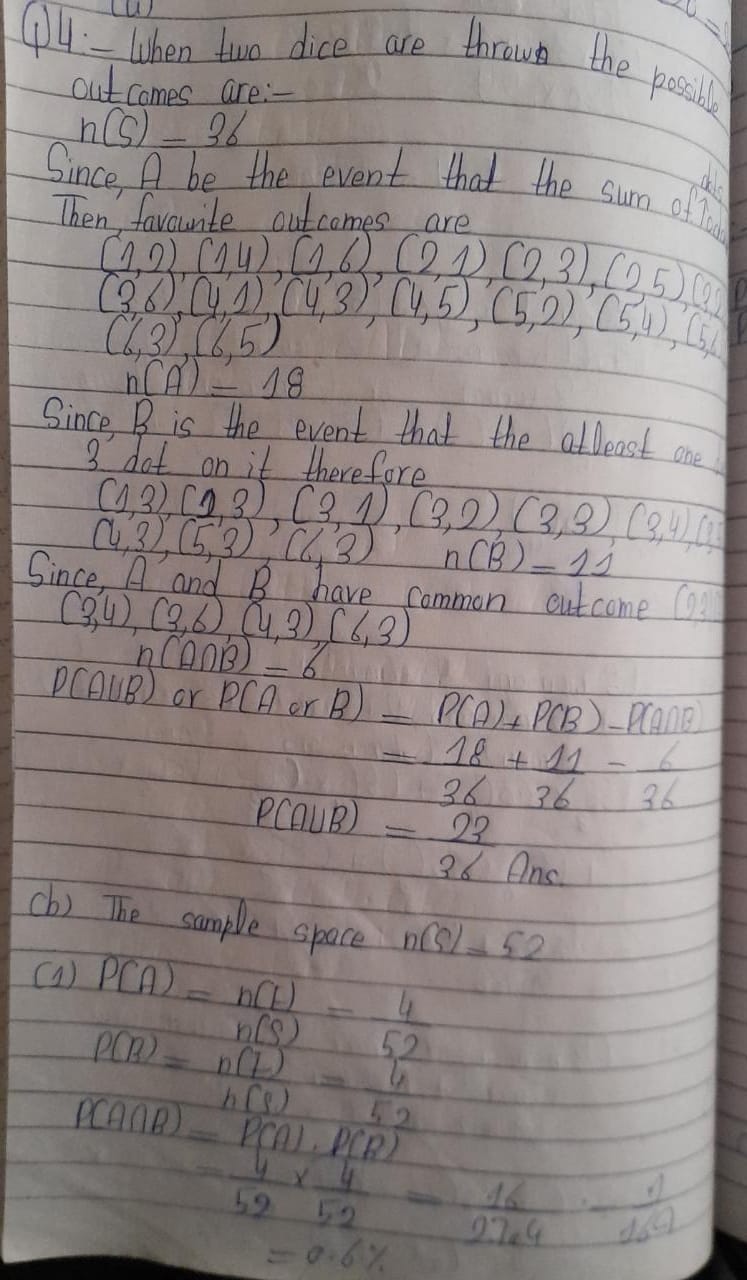 (a)
Q4:- When two dice are thrown the possible
outcomes are:-
n(S) = 36
Since, A be the event that the sum of dots
Then, favourite outcomes are
(1,2), (1,4), (1,6), (2,1), (2,3), (2,5)
(3,6), (4,1), (4,3), (4,5), (5,2), (5,4),
(6,3), (6,5)
n(A) = 18
Since, B is the event that the atleast one
3 dot on it therefore
(1,3), (2,3), (3,1), (3,2), (3,3), (3,4)
(4,3), (5,3), (6,3) n(B) = 11
Since, A and B have common outcome
(3,4), (3,6), (4,3), (6,3)
n(A∩B) = 6
P(A∪B) or P(A or B) = P(A) + P(B) - P(A∩B)
= 18 + 11 - 6
36 36 36
P(A∪B) = 23
36 Ans.
(b) The sample space n(S) = 52
(1) P(A) = n(E) = 4
n(S) 52
P(B) = n(E) = 4
n(S) 52
P(A∩B) = P(A) . P(B)
= 4 × 4 = 16 = 1
52 52 2704 169
= 0.6%